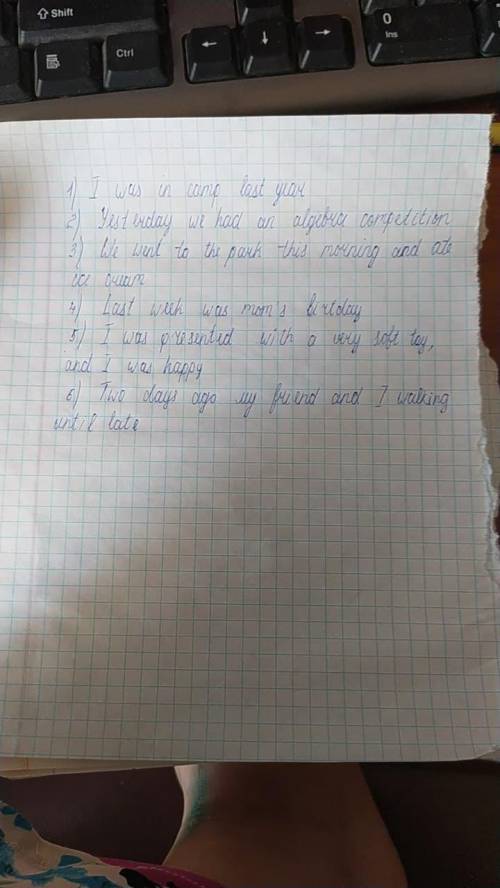 Shift
Ctrl
0
Ins
1) I was in camp last year
2) Yesterday we had an algebra competition
3) We went to the park this morning and ate
ice cream
4) Last week was mom's birtday
5) I was presented with a very soft toy,
and I was happy
6) Two days ago my friend and I walking
until late